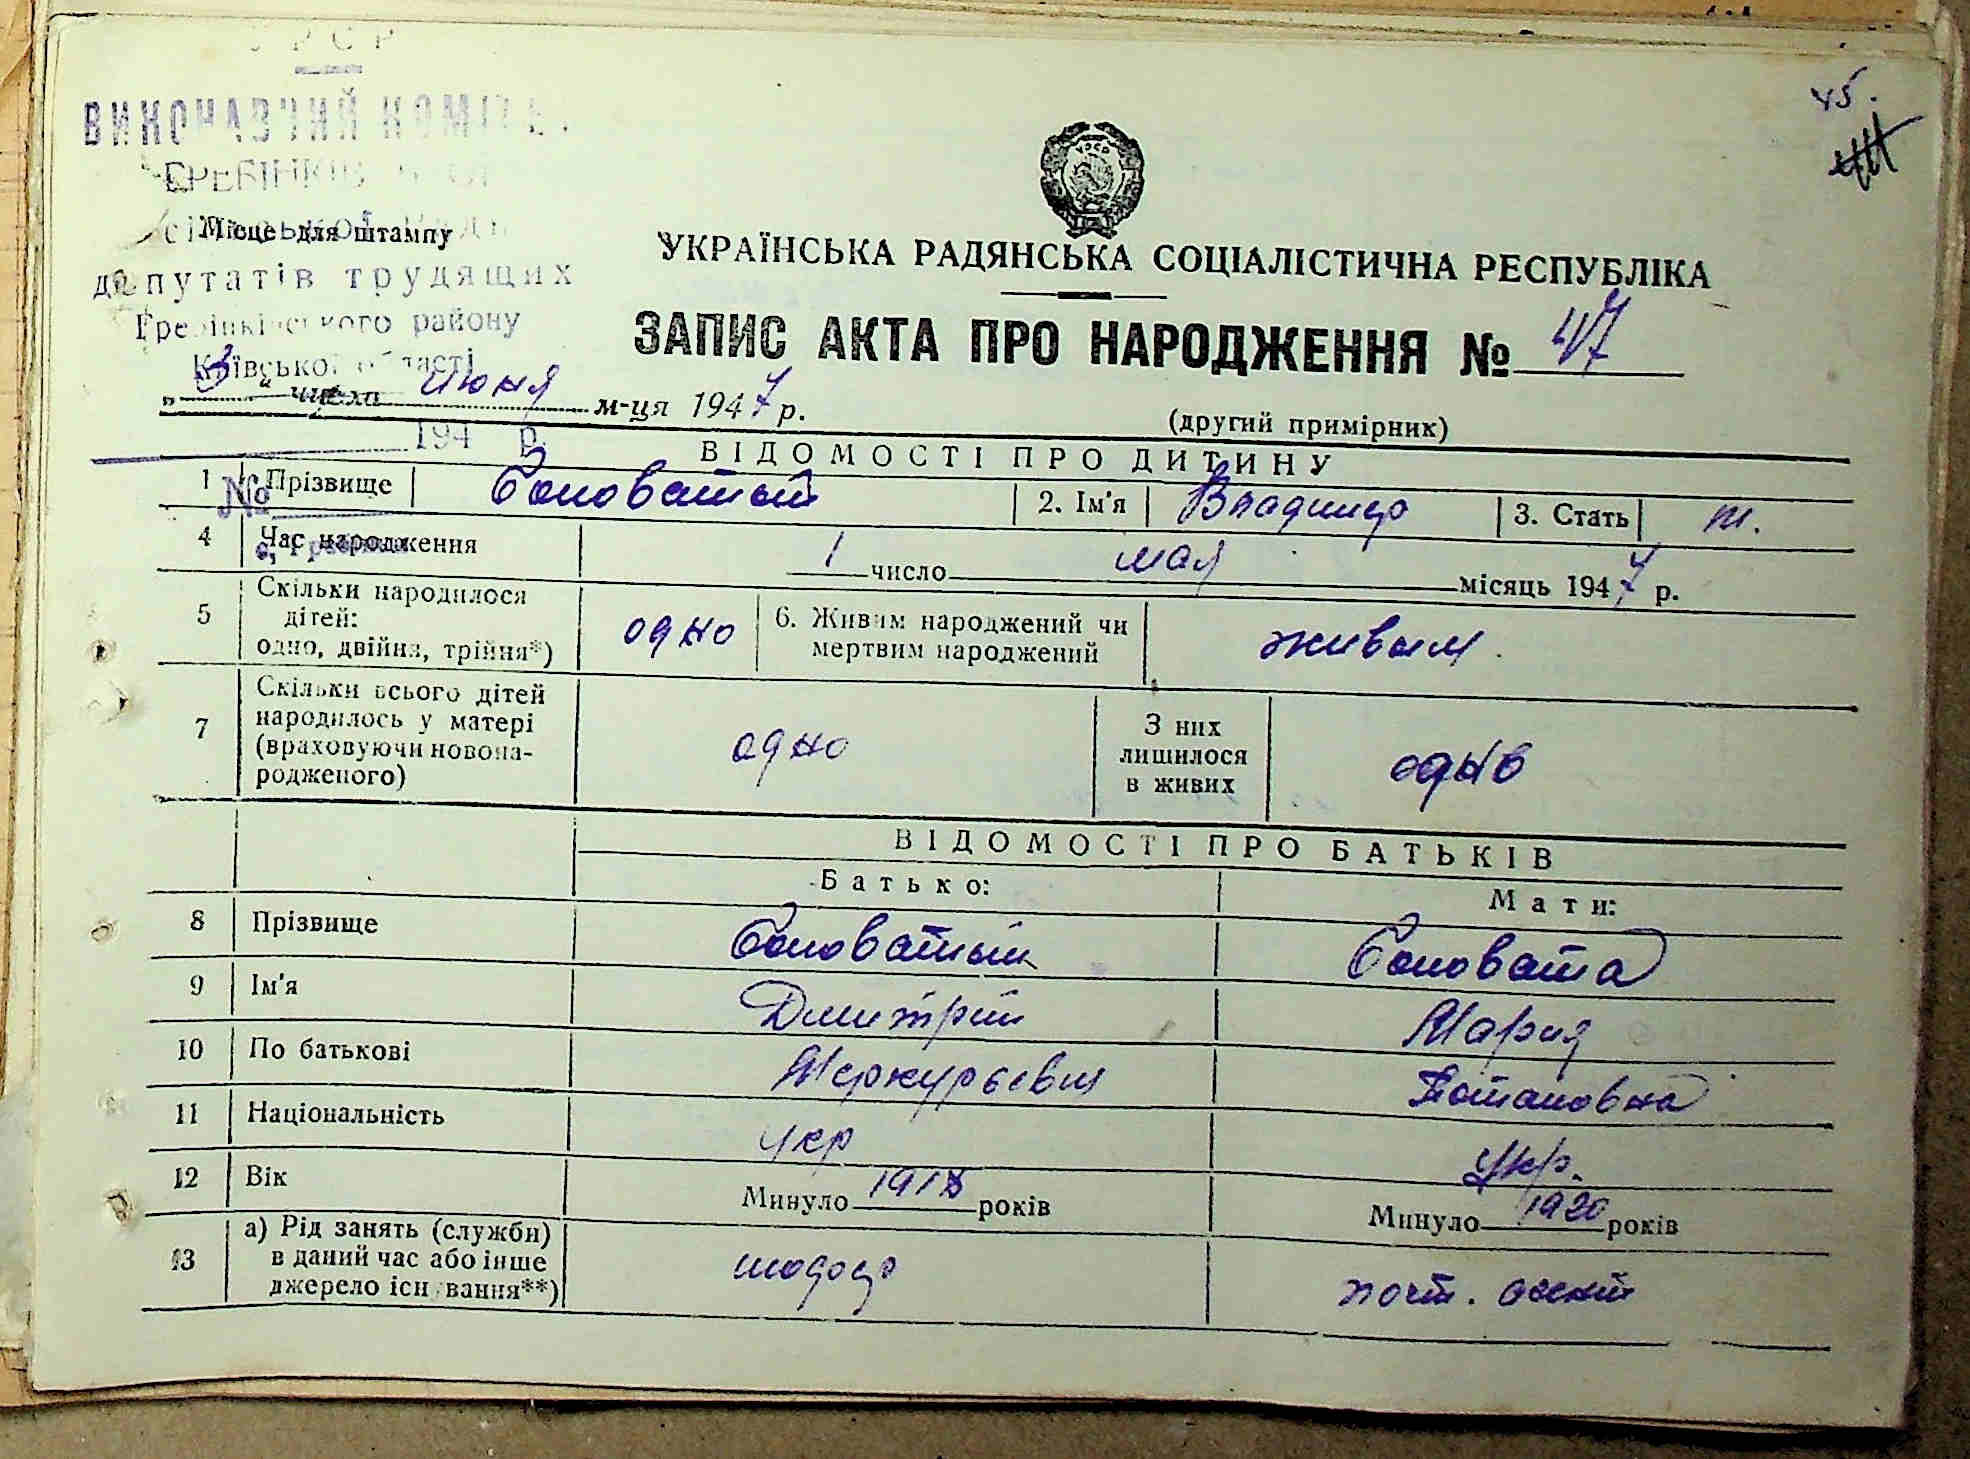 45.
УРСР
ВИКОНАВЧИЙ КОМІТЕ
ГРЕБІНКІВ
Місце для штампу
депутатів трудящих
Гребінківського району
Київської області
УКРАЇНСЬКА РАДЯНСЬКА СОЦІАЛІСТИЧНА РЕСПУБЛІКА
ЗАПИС АКТА ПРО НАРОДЖЕННЯ № 47
„3“ числа июня м-ця 1947 р.
(другий примірник)
194 р.
№
ВІДОМОСТІ ПРО ДИТИНУ
1 Прізвище Соловатый 2. Ім'я Владимир 3. Стать м.
4 Час народження 1 число мая місяць 1947 р.
5 Скільки народилося дітей: одно, двійня, трійня*) одно 6. Живим народжений чи мертвим народжений живым.
7 Скільки всього дітей народилось у матері (враховуючи новонародженого) одно З них лишилося в живих одно
ВІДОМОСТІ ПРО БАТЬКІВ
Батько: Мати:
8 Прізвище Соловатый Соловата
9 Ім'я Дмитрий Мария
10 По батькові Меркурьевич Потаповна
11 Національність укр Укр.
12 Вік Минуло 1918 років Минуло 1920 років
13 а) Рід занять (служби) в даний час або інше джерело існування**) почт. агент